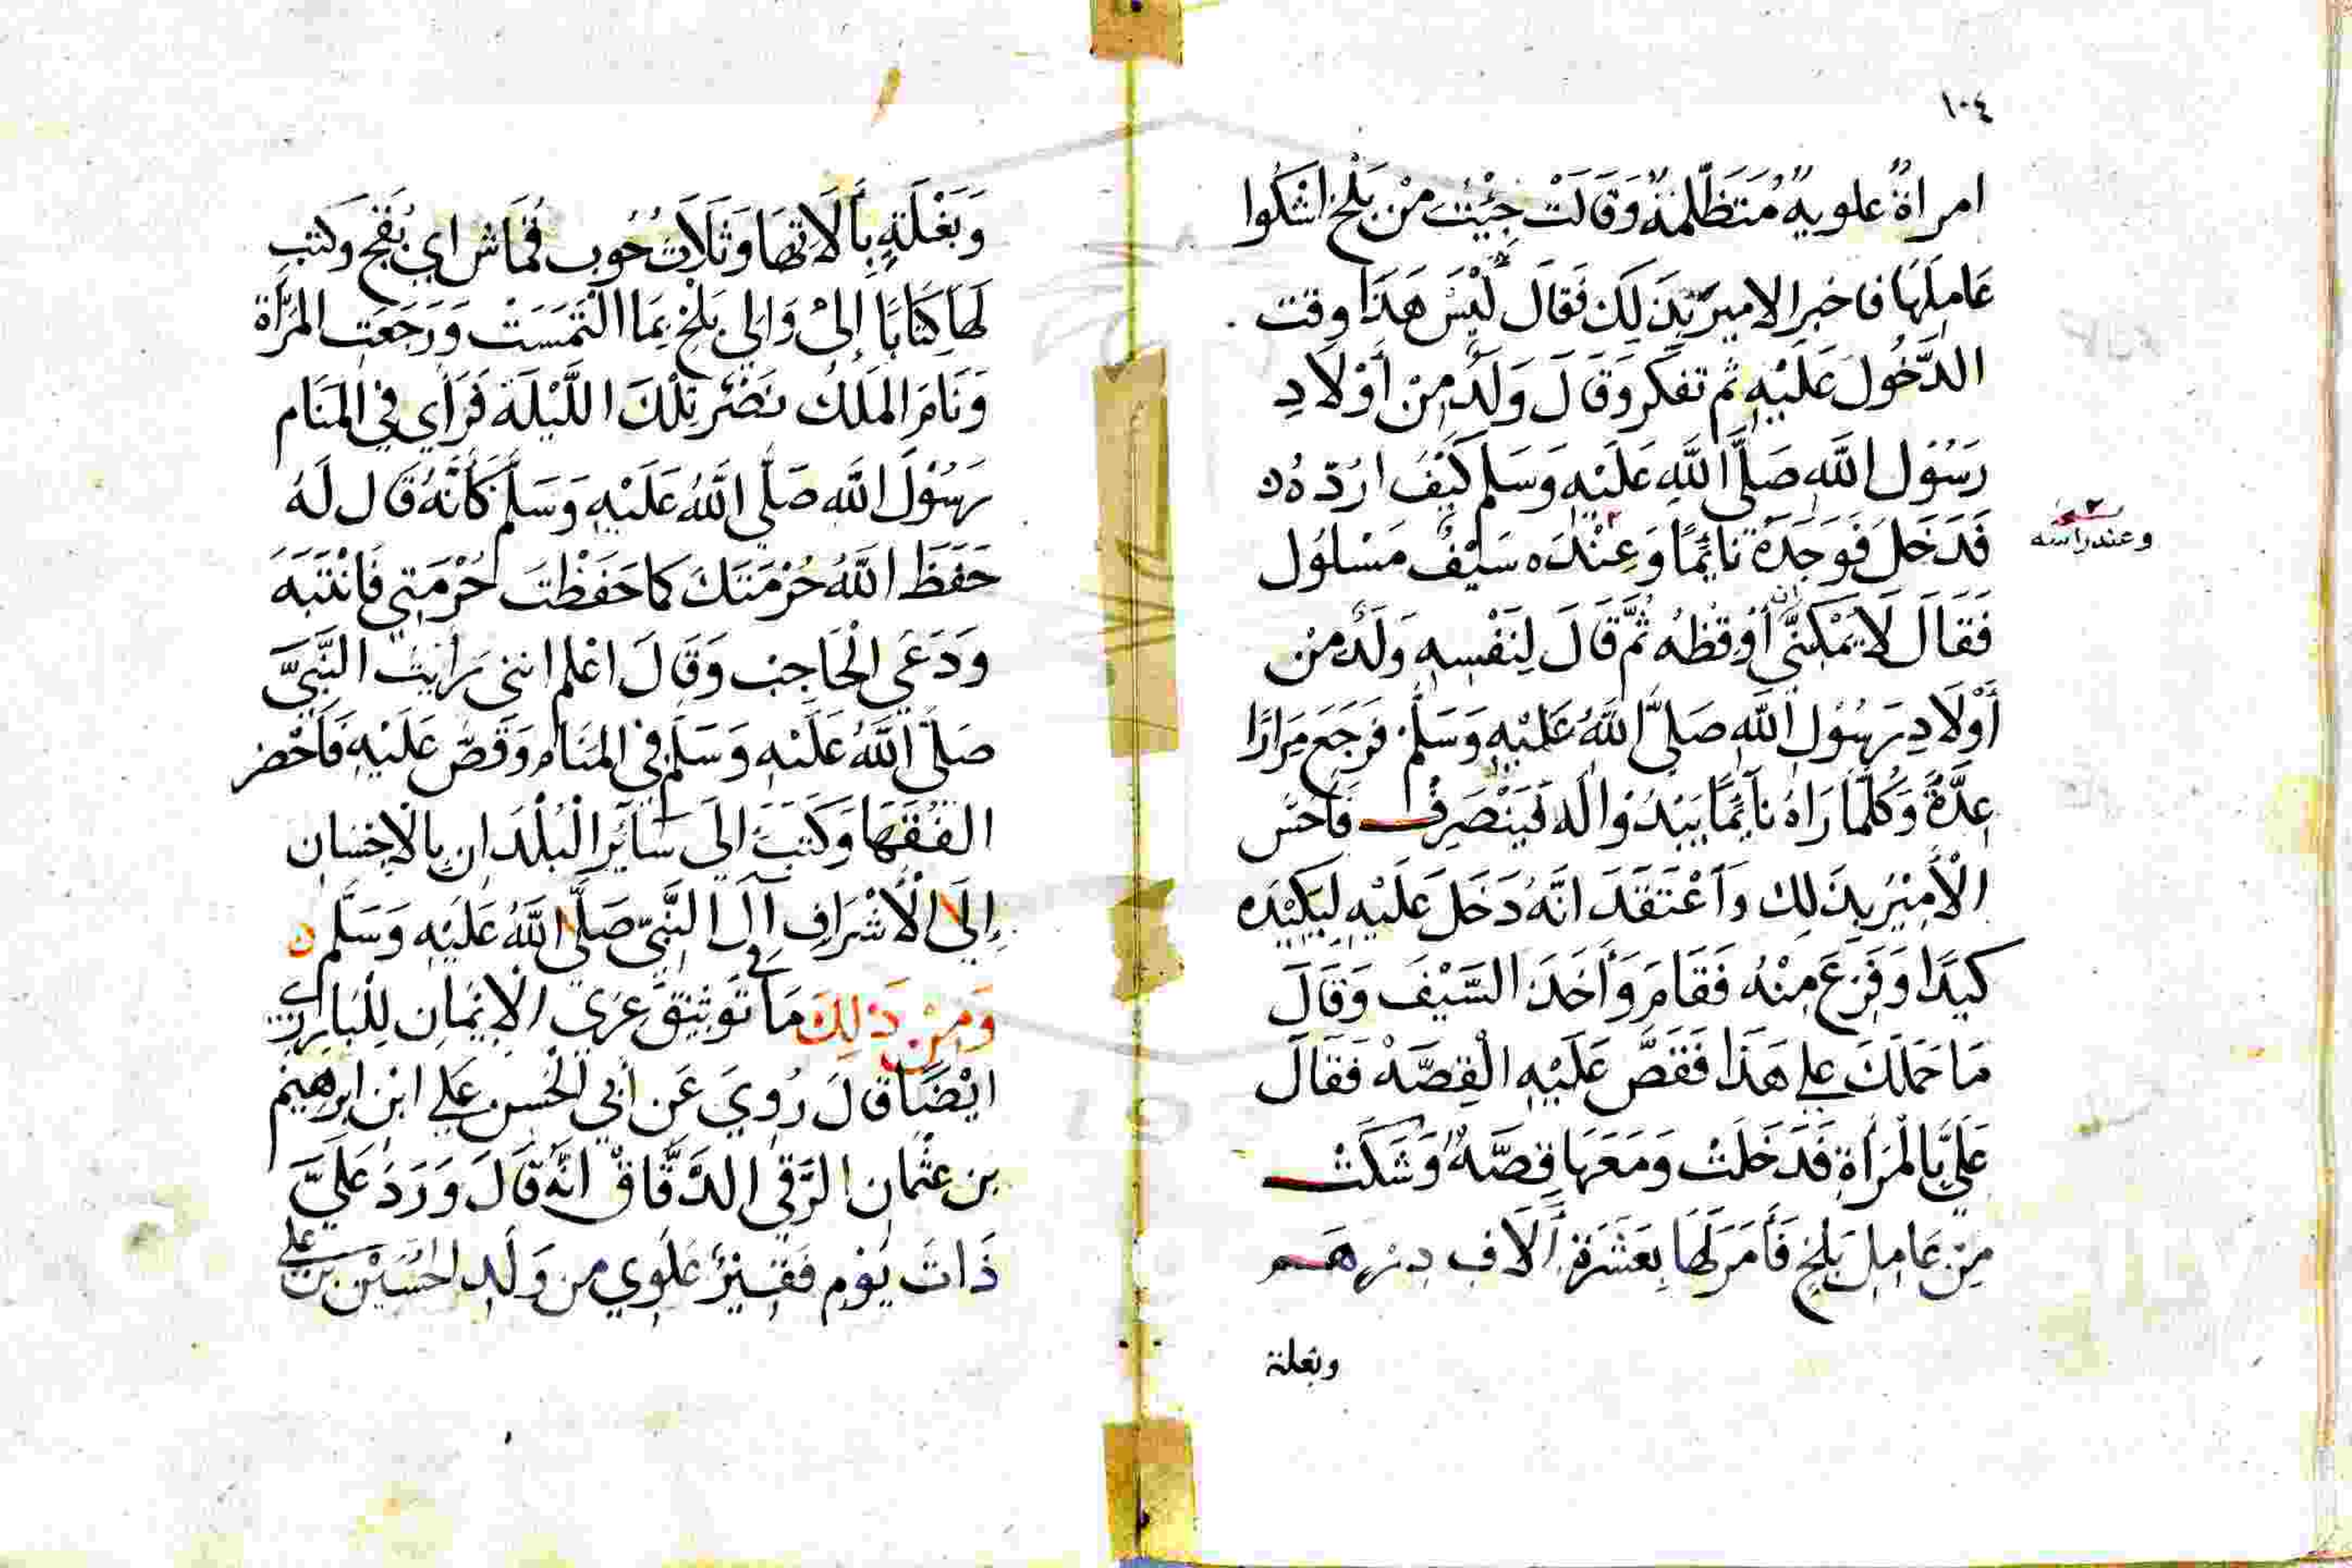 ١٠٤
امراةٌ علويةٌ مُتَظَلِّمَةٌ وَقَالَتْ جِئْتُ مِنْ بَلْخ اشكُوا
عَامِلَهَا فاخبر الامير بِذَلِكَ فَقَالَ لَيْسَ هَذَا وقت
الدَّخُولَ عَلَيْهِ ثم تفكر وَقَالَ وَلَدٌ مِنْ أَوْلَادِ
رَسُوْل اللَّهِ صَلَّى اللَّهِ عَلَيْهِ وَسَلم كَيْفَ اردّهُ
فَدَخَلَ فَوَجَدَهُ نائِمًا وَعِنْدَه سَيْفٌ مَسْلوُل
وعند راسه
فَقَالَ لَا يمْكننّي ان أوْقظه ثُمَّ قَالَ لِنَفْسِهِ وَلَدٌ مِنْ
أَوْلَادِ رَسُوْل اللَّهِ صَلَّى اللَّهُ عَلَيْهِ وَسَلَّمْ فَرَجَعَ مِرَارًا
عِدَّةً وَكُلَّمَا رَاهُ نآئِمًا يَبْدُوْا لَه فَيَنْصَرِفْ فَأَحَسَّ
الْأَمِيْرُ بِذَلِك وَاعْتَقَدَ انَّهُ دَخَلَ عَلَيْهِ لِيَكِيْدَه
كيْدًا وَفَزِعَ مِنْهُ فَقَامَ وَأَخَذَ السَّيْفَ وَقَالَ
مَا حَمَلَكَ علي هَذَا فَقَصَّ عَلَيْهِ الْقِصَّةْ فَقَالَ
عَلَيَّ بِالْمَرْأَةِ فَدَخَلَتْ وَمَعَهَا قِصَّةٌ وَشَكَتْ
مِنْ عَامِل بَلخِ فَأَمَرَ لَهَا بِعَشَرَةِ أَلَافِ دِرْهَم
وبغلة
وَبَغْلَةٍ بِأَلَاتِهَا وَثَلَاثُ حُوب قُمَاش اي بُقَجْ وَكَتَبِ
لَهَا كِتَابًا إِلىْ وَالِي بَلْخِ بِمَا الْتَمَسَتْ وَرَجَعَتِ المَرْأَة
وَنَامَ المَلَكُ نَصْر تِلْكَ اللَّيْلَة فَرَأي فِي المَنَام
رَسُوْلَ اللَّه صَلَّى اللَّهُ عَلَيْهِ وَسَلَّم كَأَنَّهُ قَال لَهُ
حَفَظَ اللَّهُ حُرْمَتَكَ كما حَفَظْتَ حُرْمَتِي فَانْتَبَهَ
وَدَعَي الْحَاجِبْ وَقَالَ اعْلم انني رأَيْتُ النَّبِيَّ
صَلَّى اللَّهُ عَلَيْهِ وَسَلَّمْ في المَنَام وَقَصَّ عَلَيْهِ فَأَحْضر
الفُقَهَا وَكَتَبَ الَى سَائِر الْبُلْدَان بِالْاحْسَان
إِلَى الْأَشْرَاف آل النَّبِيّ صَلَّى اللَّهُ عَلَيْه وَسَلَّم
وَمِنْ ذَلِكَ مَا في تَوْثِيْق عُرَي الْايْمَان لِلْبَارزي
ايْضًا قالَ رُوِيَ عَن أَبي الْحَسن علي ابْن ابرهيْم
بن عثْمان الرَّقي الدَّقَّاقْ انَّه قَالَ وَرَدَ عَلَيَّ
ذَاتَ يَوْمٍ فَقِيْرٌ عَلَوِي من وَلَد الحُسَيْن بن علي